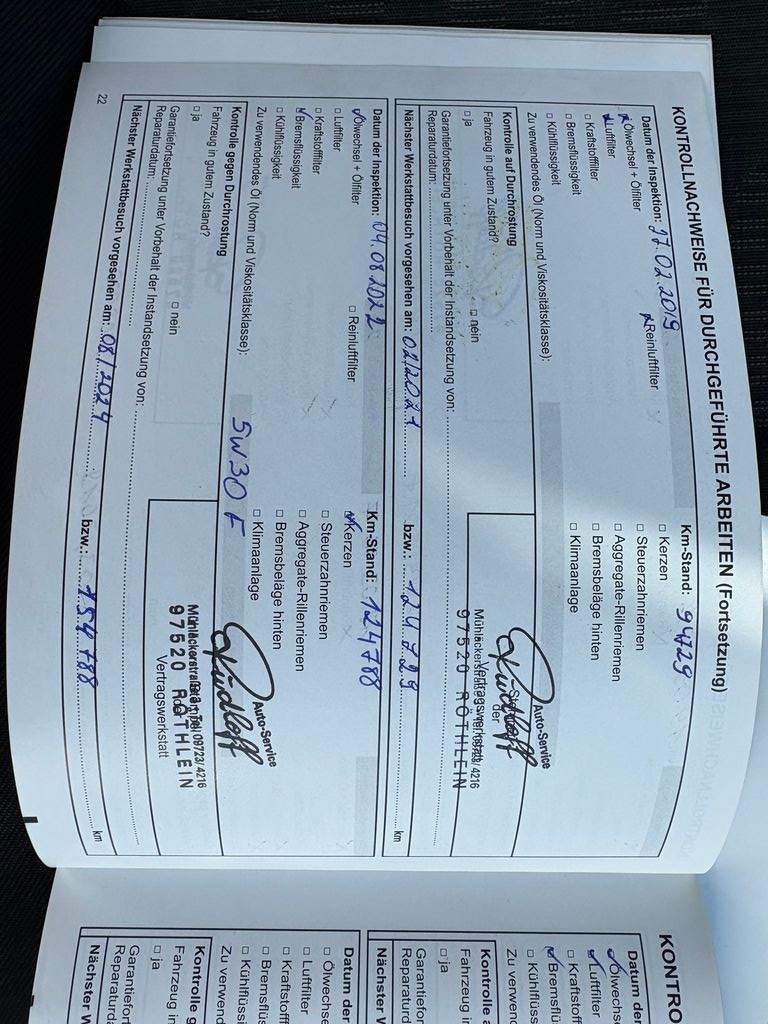 KONTROLLNACHWEISE FÜR DURCHGEFÜHRTE ARBEITEN (Fortsetzung)
Datum der Inspektion: 27.02.2019 Km-Stand: 94729
Ölwechsel + Ölfilter Reinluftfilter □ Kerzen
Luftfilter □ Steuerzahnriemen
□ Kraftstofffilter □ Aggregate-Rillenriemen
□ Bremsflüssigkeit □ Bremsbeläge hinten
□ Kühlflüssigkeit □ Klimaanlage
Zu verwendendes Öl (Norm und Viskositätsklasse):
Kontrolle auf Durchrostung
Fahrzeug in gutem Zustand?
□ ja □ nein
Auto-Service
der
Vertragswerkstatt
Mühläckerstraße 4216
97520 RÖTHLEIN
Garantiefortsetzung unter Vorbehalt der Instandsetzung von:
Reparaturdatum:
Nächster Werkstattbesuch vorgesehen am: 02/2021 bzw.: 124.729 km
Datum der Inspektion: 04.08.2022 Km-Stand: 124788
Ölwechsel + Ölfilter □ Reinluftfilter Kerzen
□ Luftfilter □ Steuerzahnriemen
□ Kraftstofffilter □ Aggregate-Rillenriemen
Bremsflüssigkeit □ Bremsbeläge hinten
□ Kühlflüssigkeit □ Klimaanlage
Zu verwendendes Öl (Norm und Viskositätsklasse): 5W30 F
Kontrolle gegen Durchrostung
Fahrzeug in gutem Zustand?
□ ja □ nein
Auto-Service
Mühläckerstraße Tel. 09723/4216
97520 RÖTHLEIN
Vertragswerkstatt
Garantiefortsetzung unter Vorbehalt der Instandsetzung von:
Reparaturdatum:
Nächster Werkstattbesuch vorgesehen am: 08/2024 bzw.: 154788 km
22
KONTRO
Datum der
Ölwechs
Luftfilter
□ Kraftstoff
Bremsflü
□ Kühlflüss
Zu verwen
Kontrolle a
Fahrzeug i
□ ja
Garantiefor
Reparaturd
Nächster W
Datum der
□ Ölwechse
□ Luftfilter
□ Kraftstoff
□ Bremsflüs
□ Kühlflüssi
Zu verwend
Kontrolle g
Fahrzeug in
□ ja
Garantiefo
Reparaturda
Nächster W